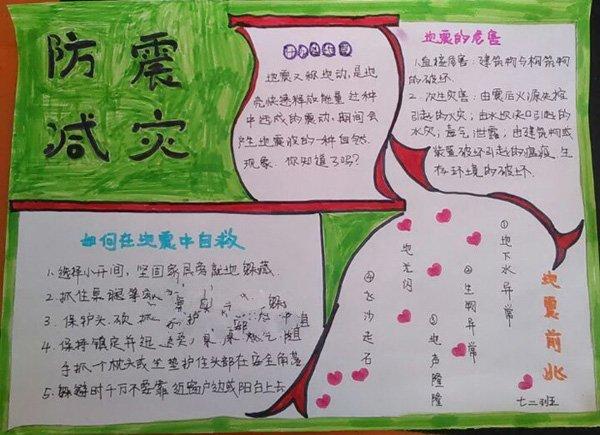 防震
减灾
地震又称地动,是地
壳快速释放能量过程
中造成的震动,期间会
产生地震波的一种自然
现象。你知道了吗?
地震的危害
1.直接危害:建筑物与构筑物
的破坏.
2.次生灾害:由震后火源失控
引起的火灾;由水坝决口引起的
水灾;毒气泄露;由建筑物或
装置破坏引起的瘟疫.生
存环境的破坏.
如何在地震中自救
1.选择小开间、坚固家具旁就地躲藏.
2.抓住桌腿等家
3.保护头.颈
4.保持镇定并
手抓一个枕头或坐垫护住头部在安全角落
5.躲避时千万不要靠近窗户边或阳台上去
地震前兆
①地下水异常
②生物异常
③地声隆隆
地光闪
④飞沙走石
七二班王